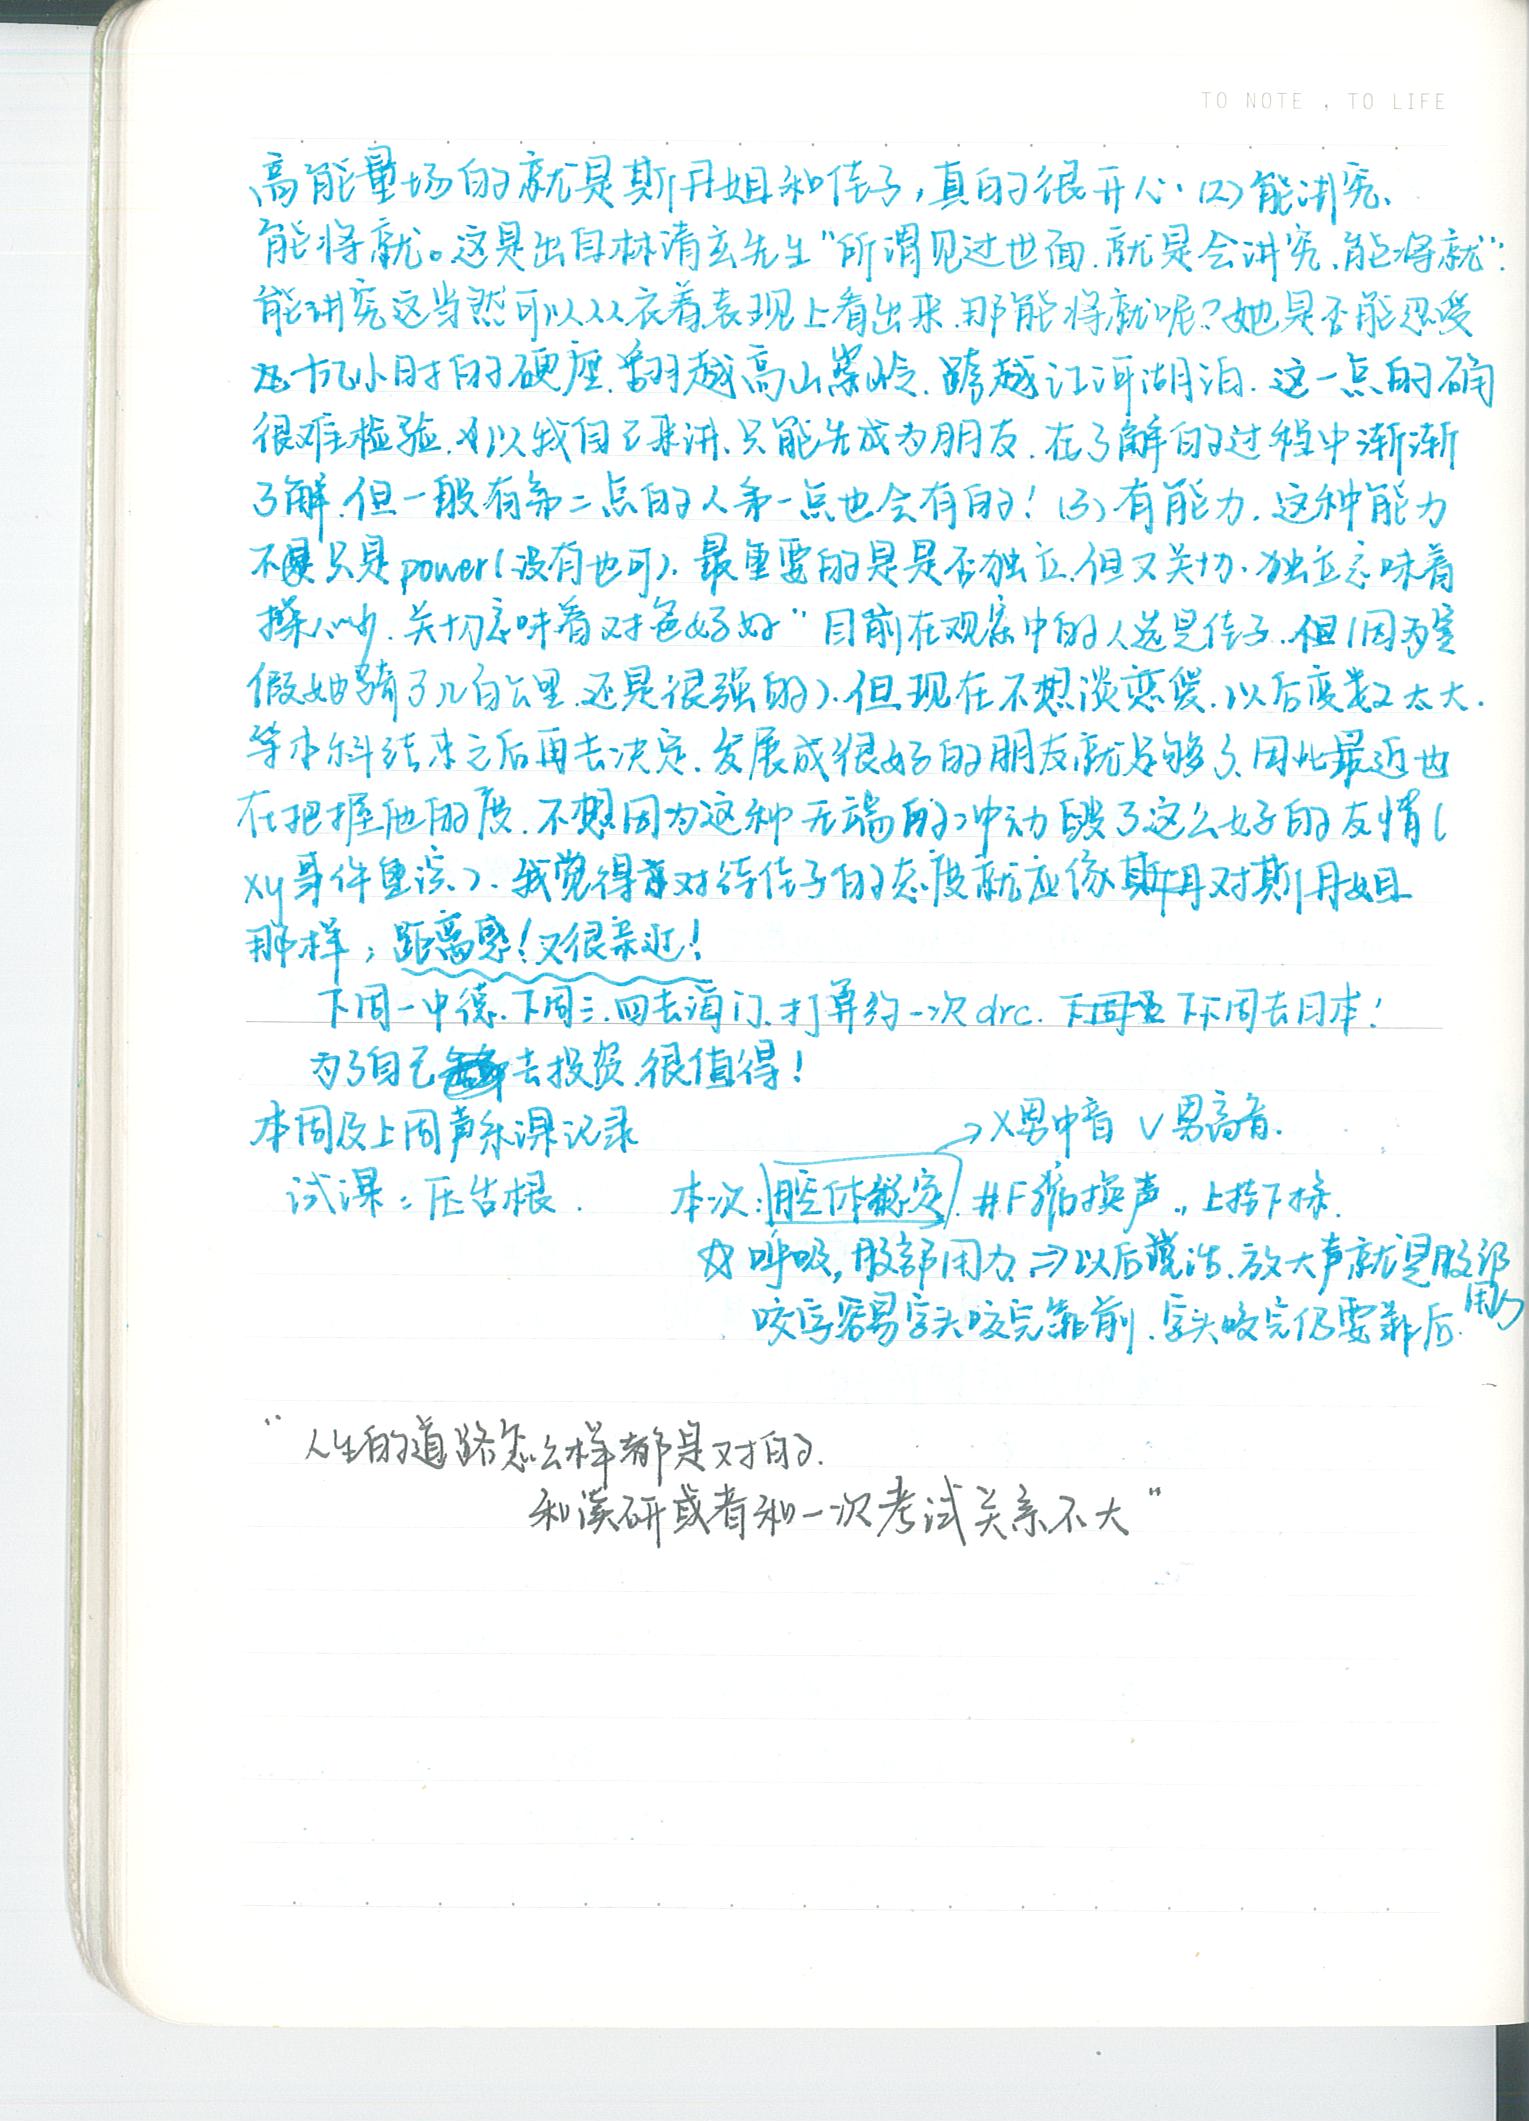 TO NOTE , TO LIFE
高能量场的就是斯丹姐和佳子，真的很开心. (2)能讲究、
能将就。这是出自林清玄先生"所谓见过世面.就是会讲究、能将就":
能讲究这当然可以从衣着表现上看出来.那能将就呢?她是否能忍受
几小时的硬座.翻越高山峻岭.跨越江河湖泊.这一点的确
很难检验.以我自己来讲.只能先成为朋友.在了解的过程中渐渐
了解.但一般有第二点的人第一点也会有的! (3)有能力.这种能力
不只是power(没有也可).最重要的是是否独立.但又关切.独立意味着
操心少.关切意味着对爸好好"目前在观察中的人选是佳子..但(因为寒
假她骑了几百公里.还是很强的).但现在不想谈恋爱.以后变数太大.
等本科结束之后再去决定.发展成很好的朋友就足够了.因此最近也
在把握他的度.不想因为这种无端的冲动毁了这么好的友情(
xy事件重演.).我觉得对待佳子的态度就应像斯丹对斯丹姐
那样; 距离感!又很亲近!
下周一中德.下周三.四去海门.打算约一次drc. 下下周去日本!
为了自己去投资.很值得!
本周及上周声乐课记录
→X男中音 V男高音.
试课: 压舌根. 本次: 腔体稳定. #F 换声., 上挂下探.
☆呼吸, 腹部用力 ⇒以后说话.放大声就是腹部
用力
咬字容易字头咬完靠前.字头咬完仍要靠后.
"人生的道路怎么样都是对的.
和读研或者和一次考试关系不大"